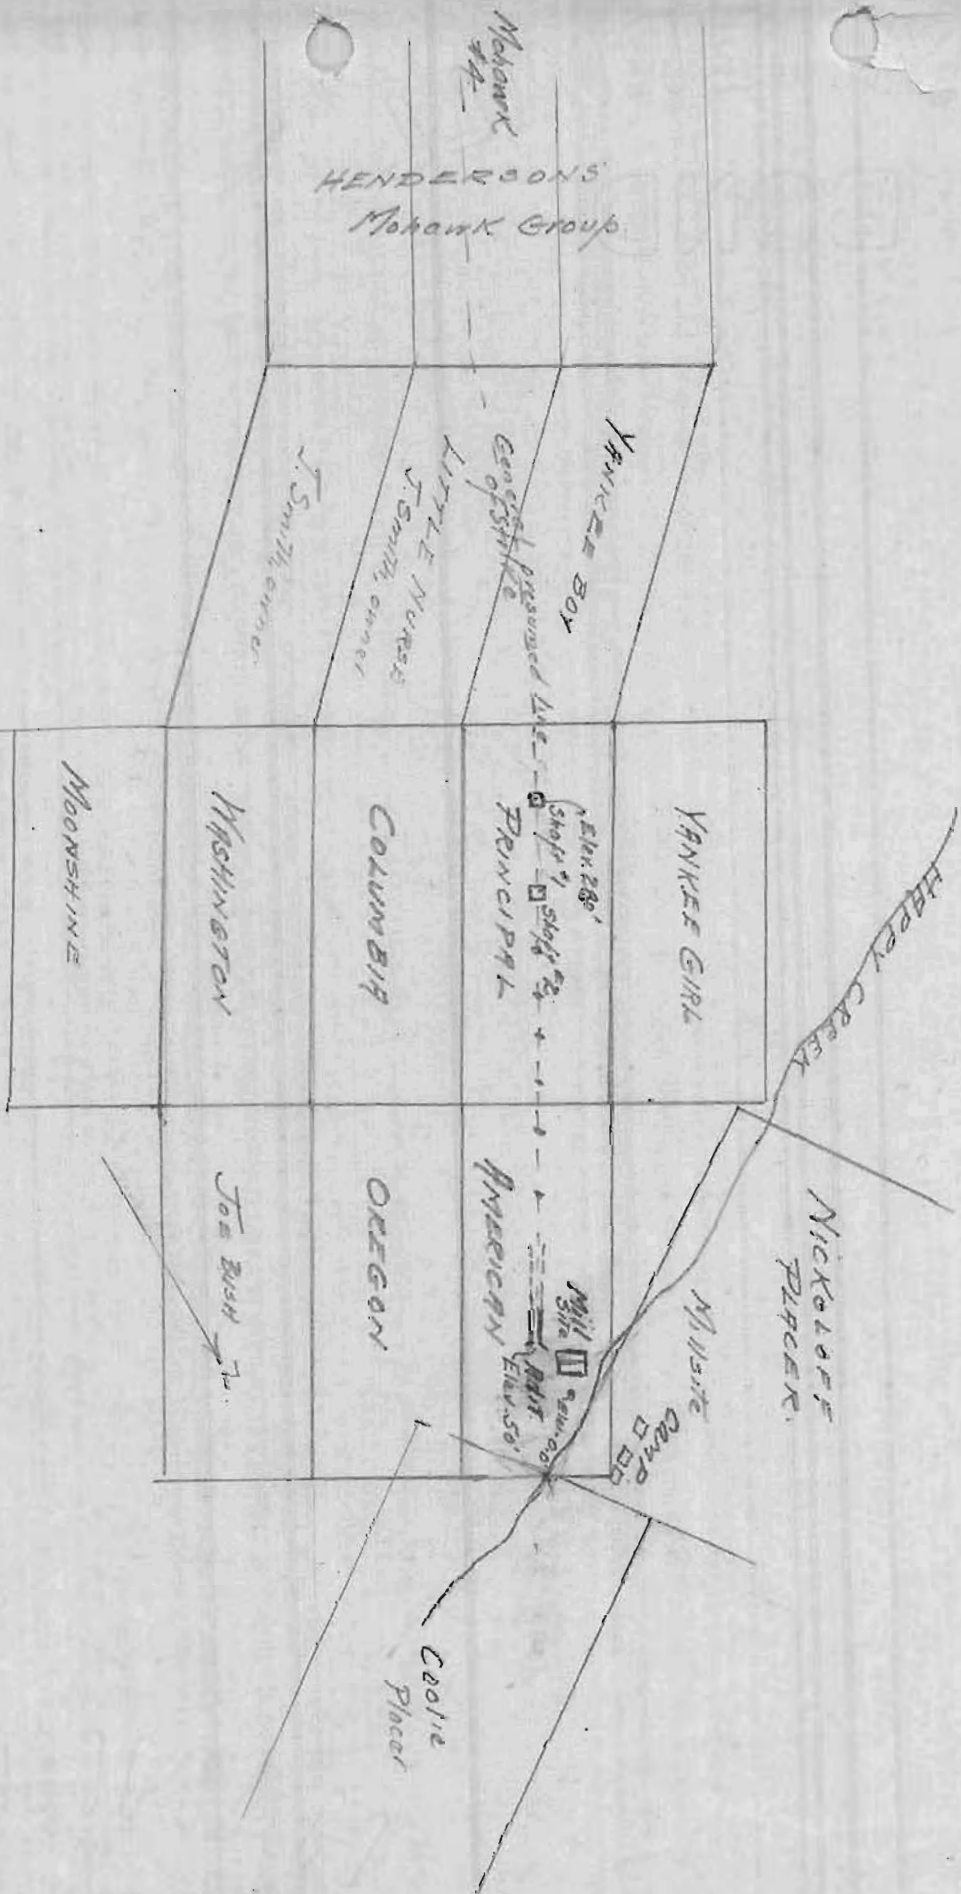 Mohawk
#4
HENDERSONS
Mohawk Group
YANKEE BOY
General presumed Line
of Strike
LITTLE NURSE
J. Smith, owner
J. Smith, owner
YANKEE GIRL
Elev. 280'
Shaft #1
Shaft #2
PRINCIPAL
COLUMBIA
WASHINGTON
MOONSHINE
HAPPY CREEK
NICKOLOFF
PLACER.
Millsite
Camp
Mill
Site
Elev. 0.0'
Adit.
Elev. 50'
AMERICAN
OREGON
JOE BUSH
Placer